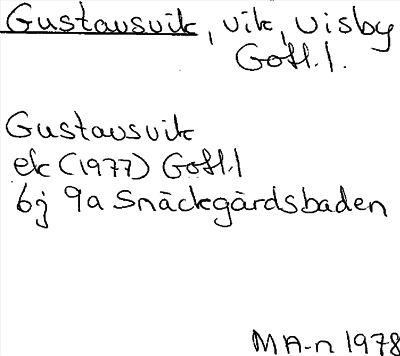 Gustavsvik, vik, Visby
Gotl.l.
Gustavsvik
ek (1977) Gotl.l
6j 9a Snäckgärdsbaden
MA-n 1978